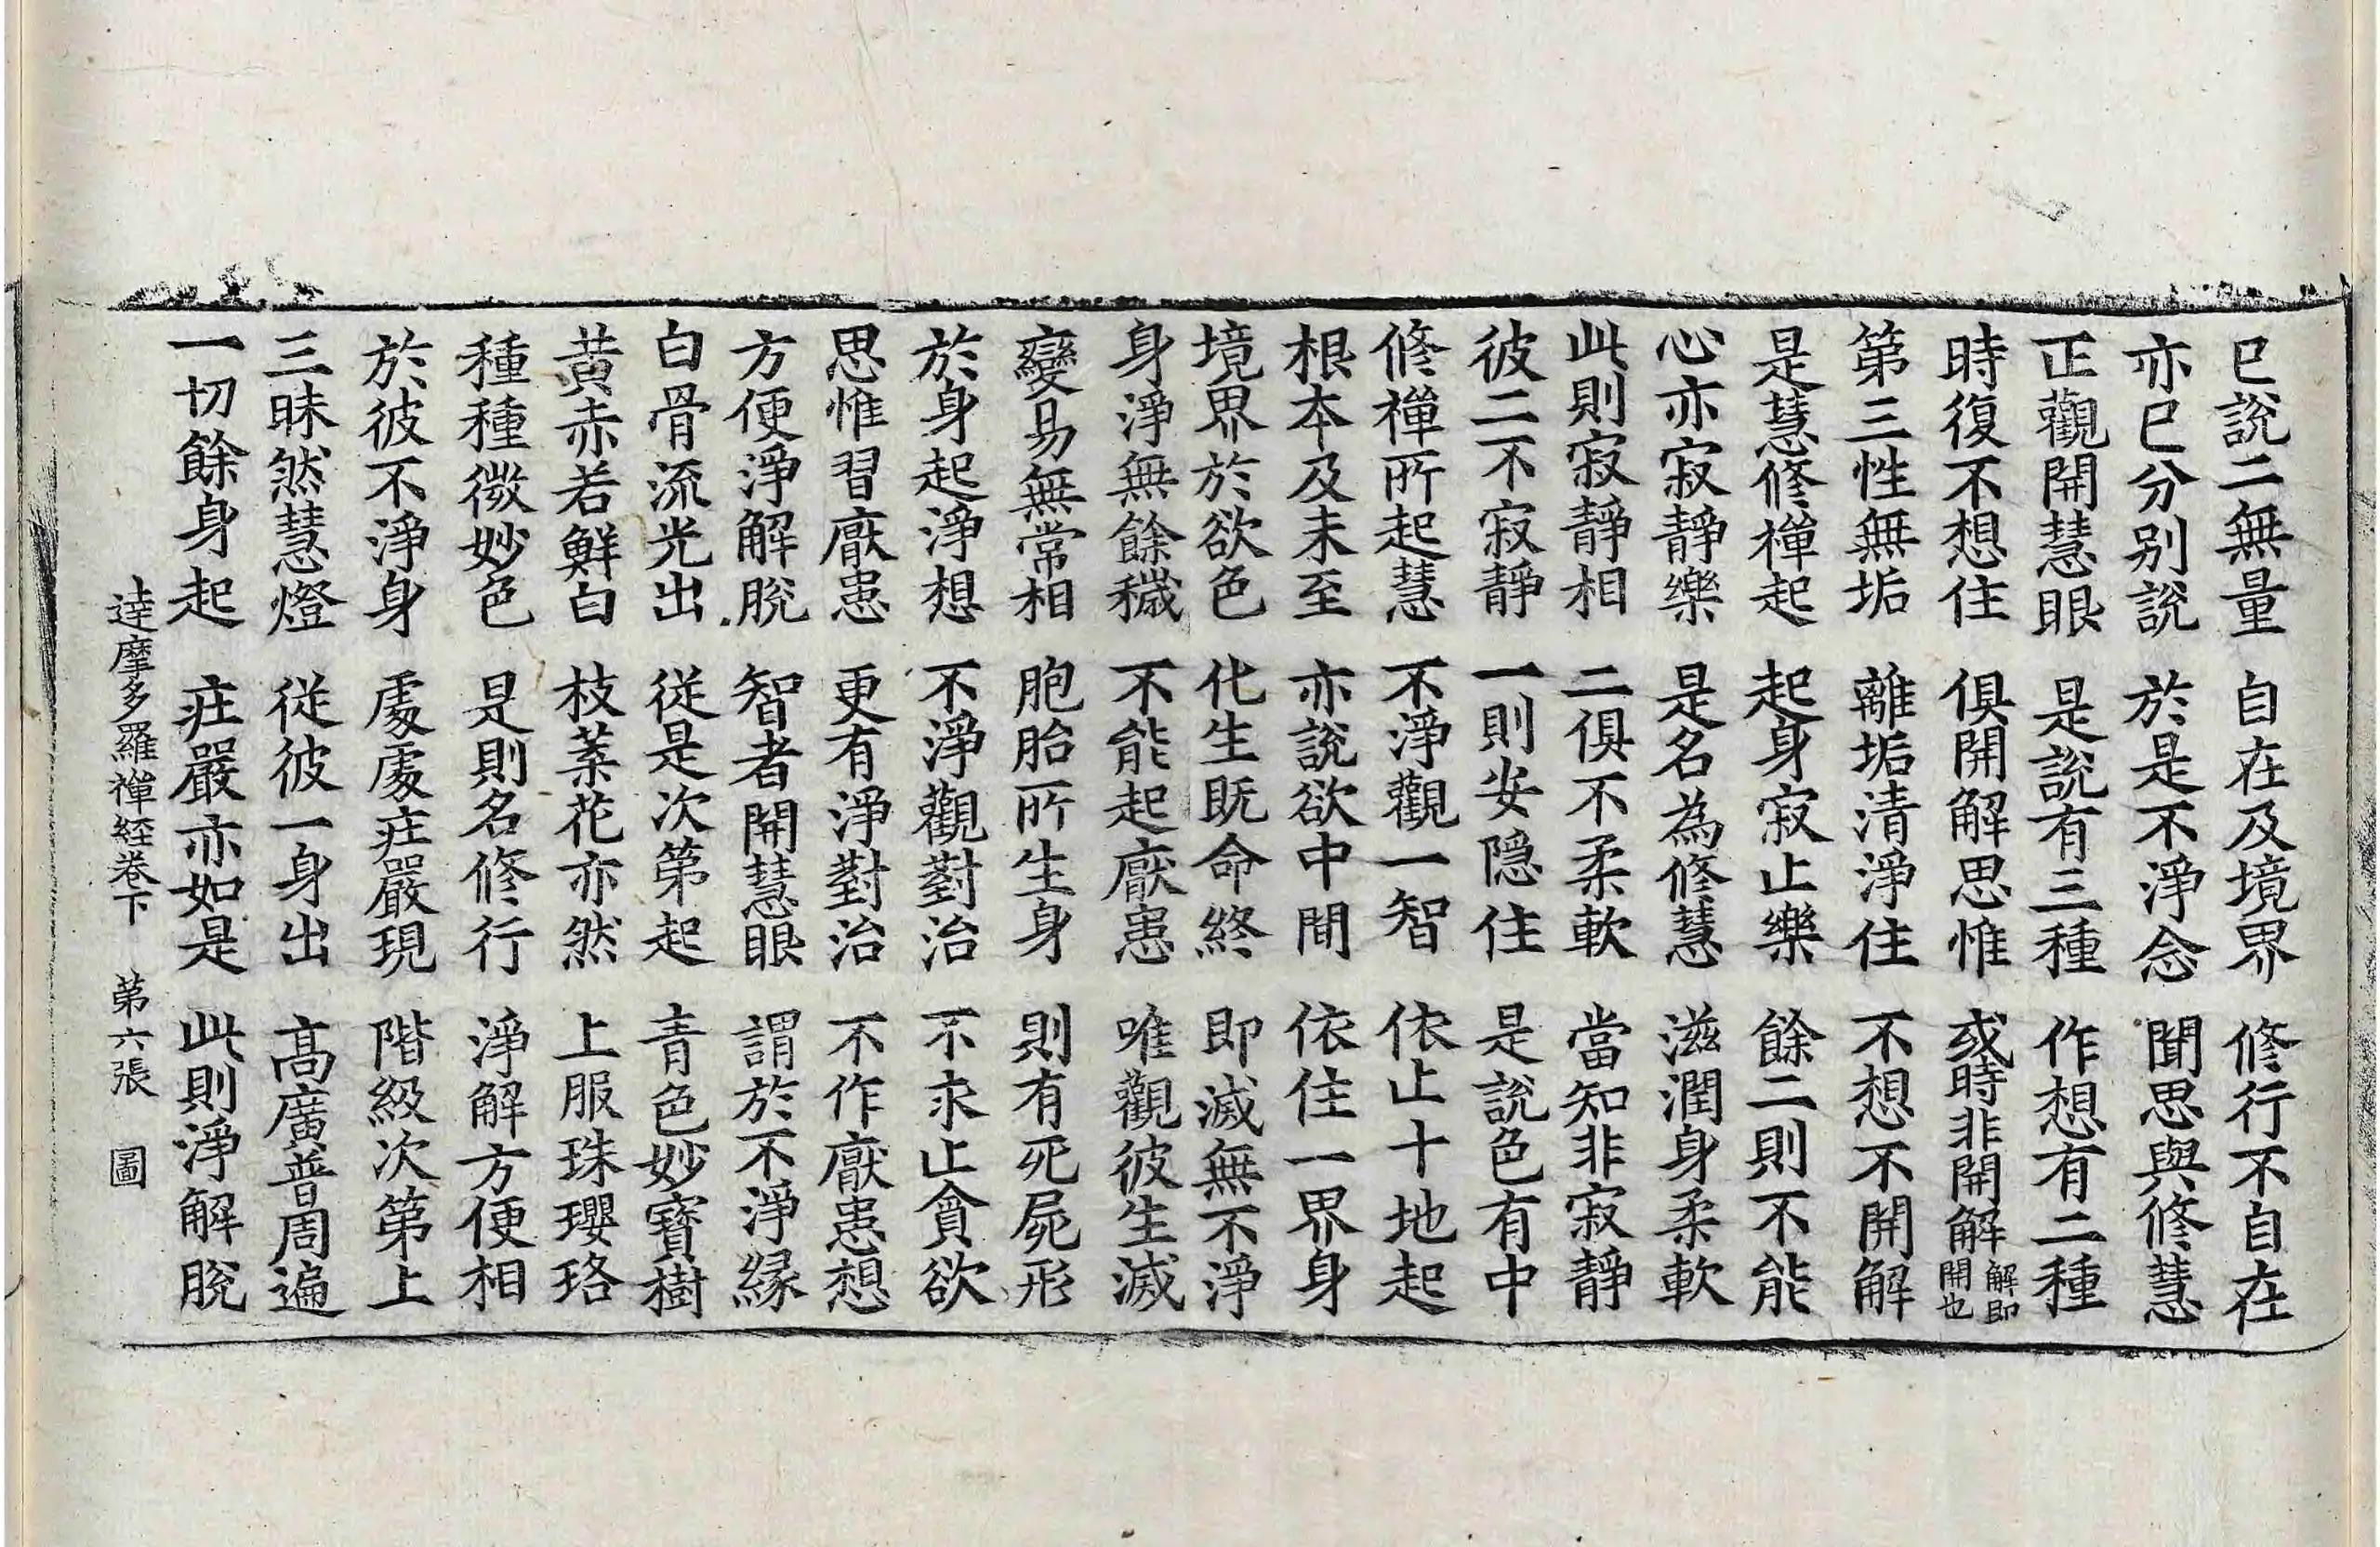 已說二無量　自在及境界　修行不自在
亦已分別說　於是不淨念　聞思與修慧
正觀開慧眼　是說有三種　作想有二種
時復不想住　俱開解思惟　或時非開解解即開也
第三性無垢　離垢清淨住　不想不開解
是慧修禪起　起身寂止樂　餘二則不能
心亦寂靜樂　是名為修慧　滋潤身柔軟
此則寂靜相　二俱不柔軟　當知非寂靜
彼二不寂靜　一則安隱住　是說色有中
修禪所起慧　不淨觀一智　依止十地起
根本及未至　亦說欲中間　依住一界身
境界於欲色　化生既命終　即滅無不淨
身淨無餘穢　不能起厭患　唯觀彼生滅
變易無常相　胞胎所生身　則有死屍形
於身起淨想　不淨觀對治　不求止貪欲
思惟習厭患　更有淨對治　不作厭患想
方便淨解脫　智者開慧眼　謂於不淨緣
白骨流光出　從是次第起　青色妙寶樹
黃赤若鮮白　枝葉花亦然　上服珠瓔珞
種種微妙色　是則名修行　淨解方便相
於彼不淨身　處處莊嚴現　階級次第上
三昧然慧燈　從彼一身出　高廣普周遍
一切餘身起　莊嚴亦如是　此則淨解脫
達摩多羅禪經卷下　第六張　圖